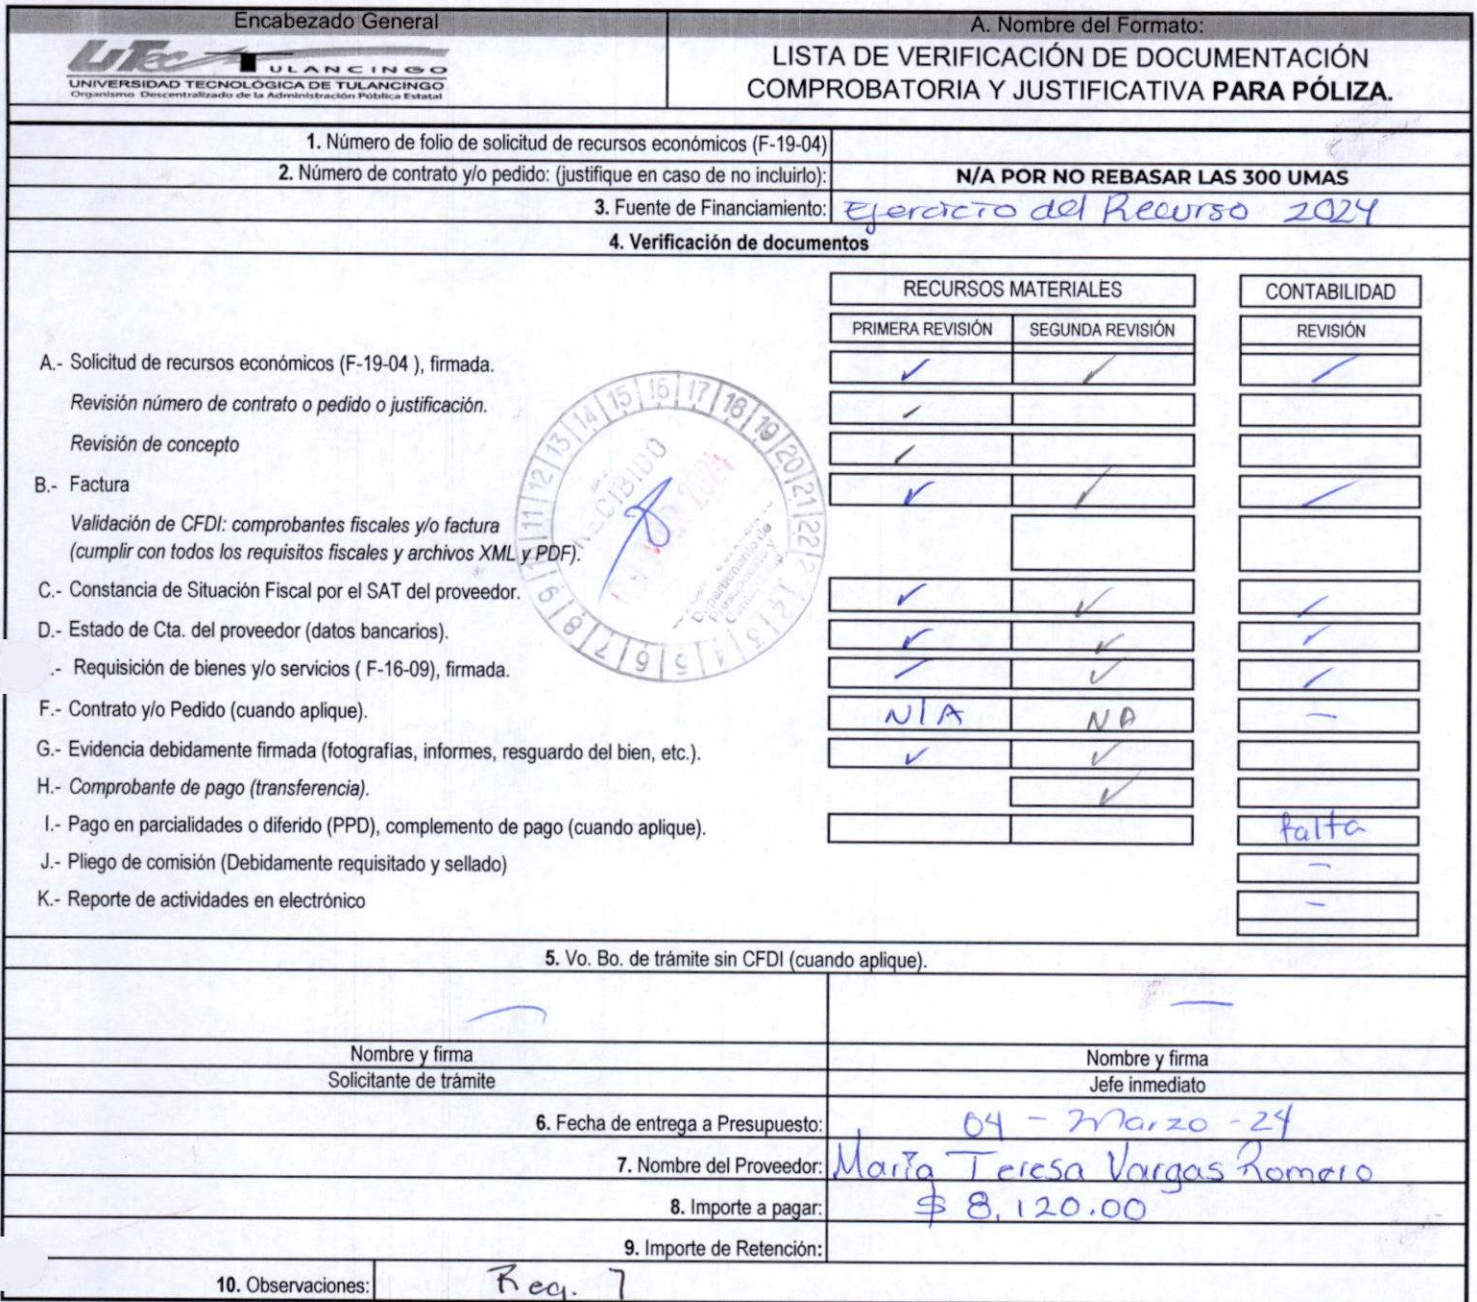 Encabezado General
A. Nombre del Formato:
UTec TULANCINGO
UNIVERSIDAD TECNOLÓGICA DE TULANCINGO
Organismo Descentralizado de la Administración Pública Estatal
LISTA DE VERIFICACIÓN DE DOCUMENTACIÓN
COMPROBATORIA Y JUSTIFICATIVA PARA PÓLIZA.
1. Número de folio de solicitud de recursos económicos (F-19-04)
2. Número de contrato y/o pedido: (justifique en caso de no incluirlo): N/A POR NO REBASAR LAS 300 UMAS
3. Fuente de Financiamiento: Ejercicio del Recurso 2024
4. Verificación de documentos
RECURSOS MATERIALES CONTABILIDAD
PRIMERA REVISIÓN SEGUNDA REVISIÓN REVISIÓN
A.- Solicitud de recursos económicos (F-19-04 ), firmada. ✓ ✓ ✓
Revisión número de contrato o pedido o justificación. ✓
Revisión de concepto ✓
B.- Factura ✓ ✓ ✓
Validación de CFDI: comprobantes fiscales y/o factura
(cumplir con todos los requisitos fiscales y archivos XML y PDF).
C.- Constancia de Situación Fiscal por el SAT del proveedor. ✓ ✓ ✓
D.- Estado de Cta. del proveedor (datos bancarios). ✓ ✓ ✓
.- Requisición de bienes y/o servicios ( F-16-09), firmada. ✓ ✓ ✓
F.- Contrato y/o Pedido (cuando aplique). N/A NA -
G.- Evidencia debidamente firmada (fotografías, informes, resguardo del bien, etc.). ✓ ✓
H.- Comprobante de pago (transferencia). ✓
I.- Pago en parcialidades o diferido (PPD), complemento de pago (cuando aplique). falta
J.- Pliego de comisión (Debidamente requisitado y sellado) -
K.- Reporte de actividades en electrónico -
1 2 3 4 5 6 7 8 9 11 12 13 14 15 16 17 18 19 20 21 22
RECIBIDO
2024
Departamento de
5. Vo. Bo. de trámite sin CFDI (cuando aplique).
Nombre y firma Nombre y firma
Solicitante de trámite Jefe inmediato
6. Fecha de entrega a Presupuesto: 04 - Marzo - 24
7. Nombre del Proveedor: María Teresa Vargas Romero
8. Importe a pagar: $ 8,120.00
9. Importe de Retención:
10. Observaciones: Req. 7